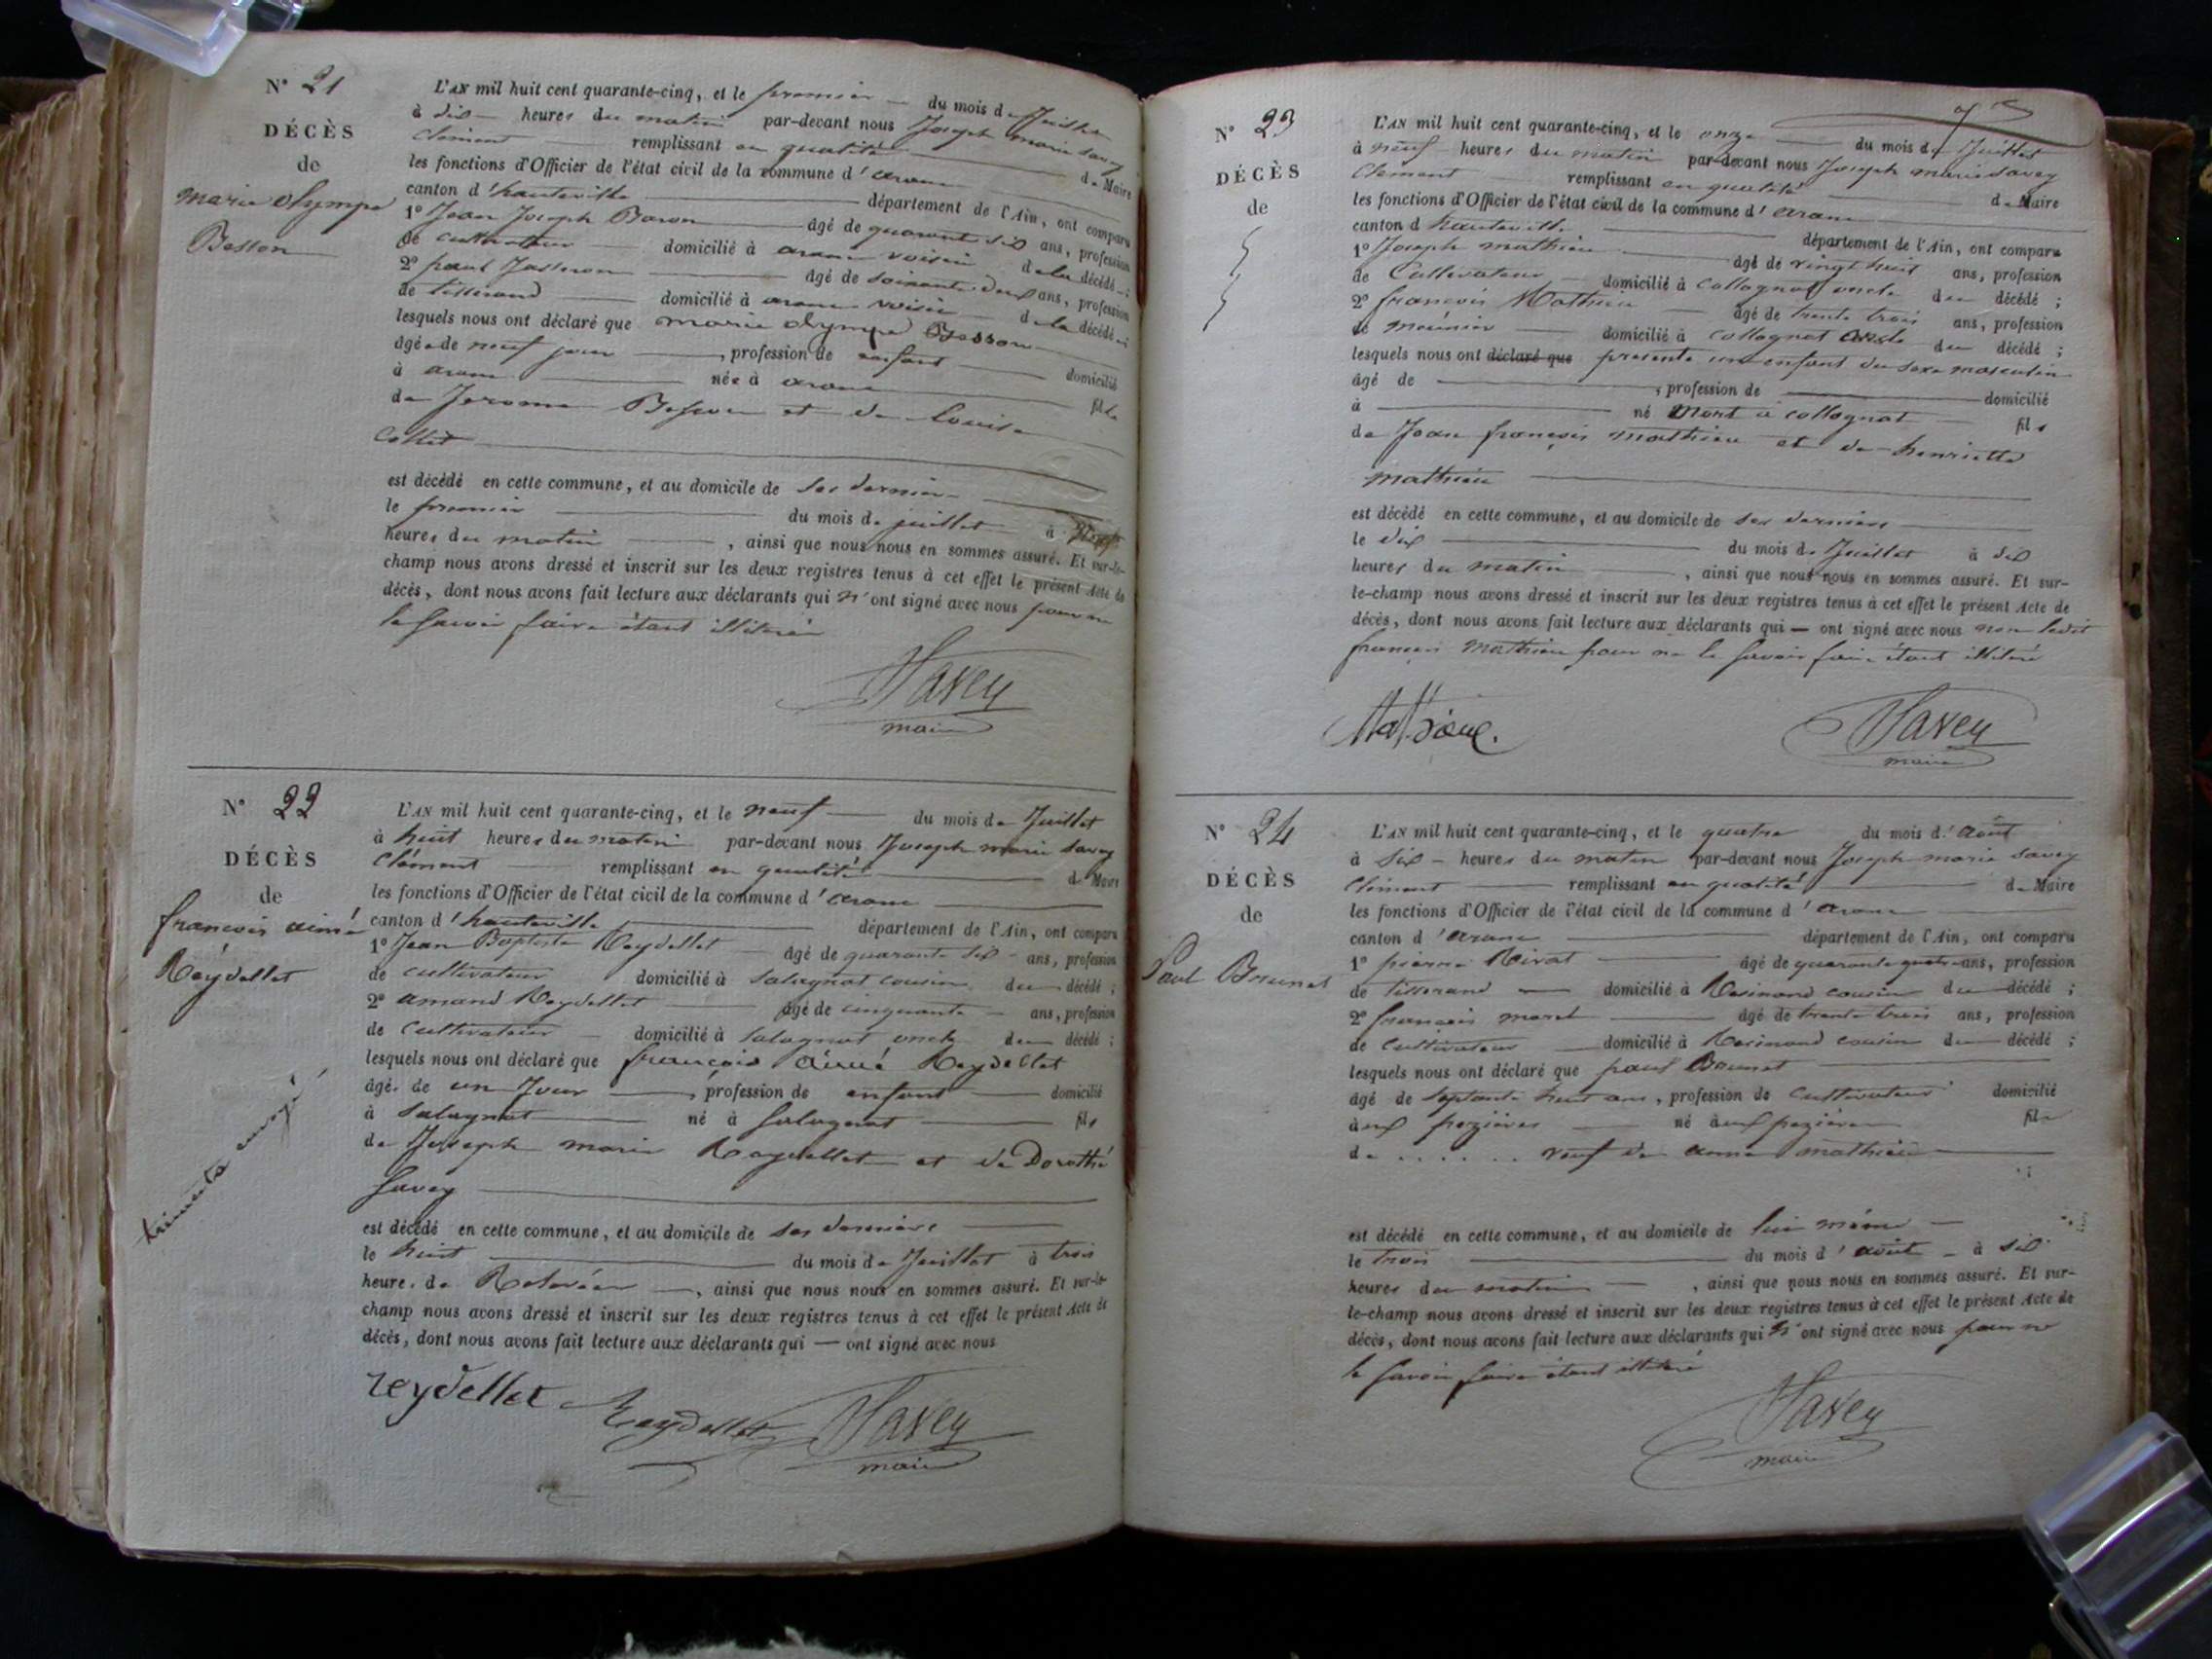 N° 21
DÉCÈS
de
marie olympe
Besson
L'AN mil huit cent quarante-cinq, et le premier du mois de Juillet
à dix heures du matin par-devant nous Joseph marie Savey
Clément remplissant en qualité de Maire
les fonctions d'Officier de l'état civil de la commune d'aranc
canton d'hauteville département de l'Ain, ont comparu
1° Jean Joseph Baron âgé de quarante six ans, profession
de cultivateur domicilié à aranc voisin de la décédé ;
2° paul Jasseron âgé de soixante deux ans, profession
de tisserand domicilié à aranc voisin de la décédé ;
lesquels nous ont déclaré que marie olympe Besson
âgée de neuf jour, profession de enfant domicilié
à aranc née à aranc fille
de Jerome Besson et de Louise
Collet
est décédé en cette commune, et au domicile de ses dernier
le premier du mois de juillet à
heures du matin, ainsi que nous nous en sommes assuré. Et sur-le-
champ nous avons dressé et inscrit sur les deux registres tenus à cet effet le présent Acte de
décès, dont nous avons fait lecture aux déclarants qui n'ont signé avec nous pour ne
le savoir faire étant illitéré
Savey
maire
N° 22
DÉCÈS
de
francois aimé
Reydellet
L'AN mil huit cent quarante-cinq, et le neuf du mois de Juillet
à huit heures du matin par-devant nous Joseph marie Savey
Clément remplissant en qualité de Maire
les fonctions d'Officier de l'état civil de la commune d'aranc
canton d'hauteville département de l'Ain, ont comparu
1° Jean Baptiste Reydellet âgé de quarante six ans, profession
de cultivateur domicilié à Salagnat cousin du décédé ;
2° amand Reydellet âgé de cinquante ans, profession
de Cultivateur domicilié à Salagnat oncle du décédé ;
lesquels nous ont déclaré que francois aimé Reydellet
âgé de un Jour, profession de enfant domicilié
à Salagnat né à Salagnat fils
de Joseph marie Reydellet et de Dorothé
Savey
est décédé en cette commune, et au domicile de ses derniers
le huit du mois de Juillet à trois
heure. de Relevée, ainsi que nous nous en sommes assuré. Et sur-le-
champ nous avons dressé et inscrit sur les deux registres tenus à cet effet le présent Acte de
décès, dont nous avons fait lecture aux déclarants qui — ont signé avec nous
reydellet Reydellet Savey
maire
N° 23
DÉCÈS
de
L'AN mil huit cent quarante-cinq, et le onze du mois de Juillet
à neuf heures du matin par-devant nous Joseph marie Savey
Clement remplissant en qualité de Maire
les fonctions d'Officier de l'état civil de la commune d'aranc
canton d hauteville département de l'Ain, ont comparu
1° Joseph mathieu âgé de vingt huit ans, profession
de Cultivateur domicilié à Collognat oncle du décédé ;
2° francois Mathieu âgé de trente trois ans, profession
de meunier domicilié à collognat oncle du décédé ;
lesquels nous ont déclaré que presenté un enfant du sexe masculin
âgé de , profession de domicilié
à né Mort à collognat fils
de Jean françois mathieu et de henriette
mathieu
est décédé en cette commune, et au domicile de ses derniers
le dix du mois de Juillet à six
heures du matin, ainsi que nous nous en sommes assuré. Et sur-
le-champ nous avons dressé et inscrit sur les deux registres tenus à cet effet le présent Acte de
décès, dont nous avons fait lecture aux déclarants qui — ont signé avec nous non ledit
françois Mathieu pour ne le savoir faire étant illitéré
Mathieu. Savey
maire
N° 24
DÉCÈS
de
Paul Brunet
L'AN mil huit cent quarante-cinq, et le quatre du mois d'août
à six heures du matin par-devant nous Joseph marie Savey
Clément remplissant en qualité de Maire
les fonctions d'Officier de l'état civil de la commune d'aranc
canton d'aranc département de l'Ain, ont comparu
1° pierre Rivat âgé de quarante quatre ans, profession
de tisserand domicilié à Resinand cousin du décédé ;
2° francois moret âgé de trente trois ans, profession
de Cultivateur domicilié à Resinand cousin du décédé ;
lesquels nous ont déclaré que paul Brunet
âgé de septante huit ans, profession de Cultivateur domicilié
aux pezières né aux pezières fils
de . . . . . . veuf de anne mathieu
est décédé en cette commune, et au domicile de lui même
le trois du mois d'août à six
heures du matin, ainsi que nous nous en sommes assuré. Et sur-
le-champ nous avons dressé et inscrit sur les deux registres tenus à cet effet le présent Acte de
décès, dont nous avons fait lecture aux déclarants qui n'ont signé avec nous pour ne
le savoir faire étant illitéré
Savey
maire